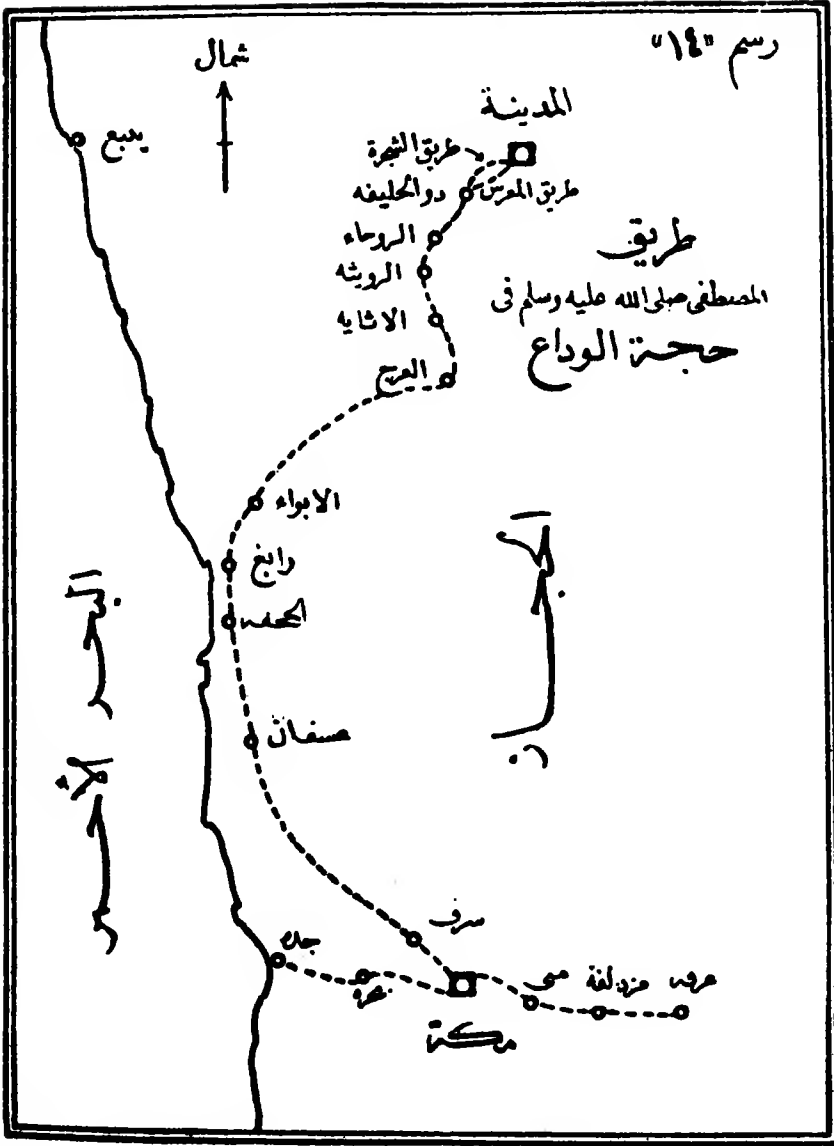 رسم "١٤"
شمال
المدينة
ينبع
طريق الشجرة
طريق المعرس
ذو الحليفه
الروحاء
الرويثه
الاثايه
العرج
طريق
المصطفى صلى الله عليه وسلم فى
حجة الوداع
الابواء
رابغ
الجحفه
عسفان
البحر الأحمر
سرف
جده
بحره
مكة
منى
مزدلفة
عرفه